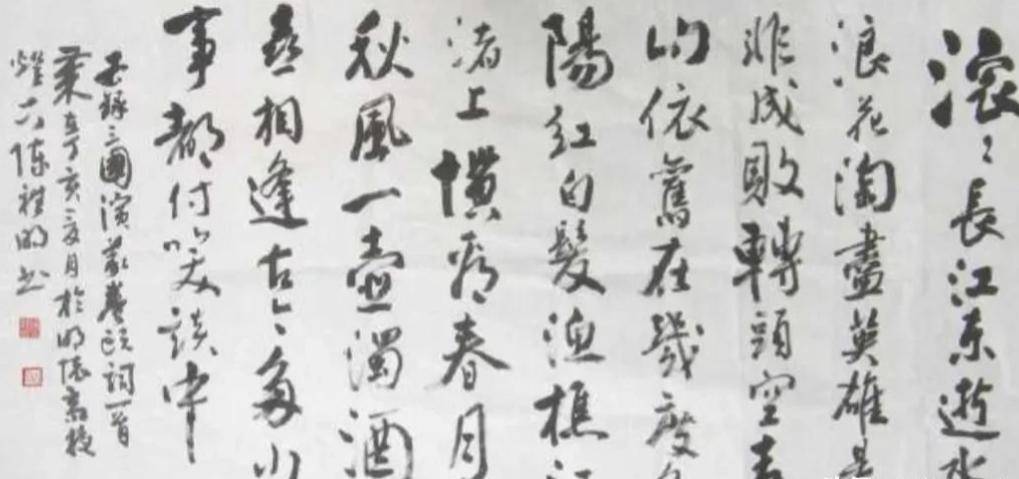 滚〻長江东逝水
浪花淘盡英雄是
非成敗轉頭空青
山依舊在幾度夕
陽紅白髮渔樵江
渚上慣看春月
秋風一壺濁酒
喜相逢古今多少
事都付笑談中
錄三國演義卷頭詞一首
丁亥月於
陳明书